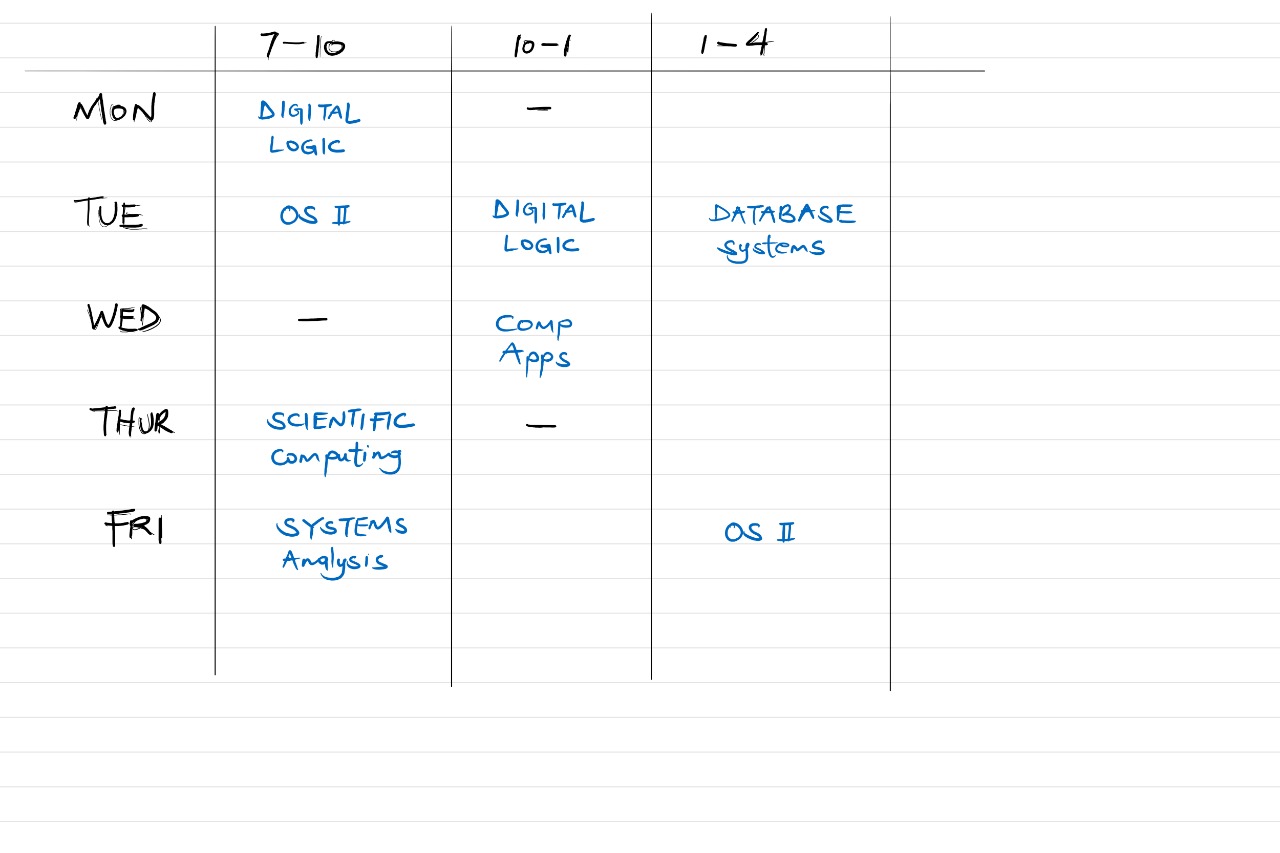 7-10 10-1 1-4
MON DIGITAL —
LOGIC
TUE OS II DIGITAL DATABASE
LOGIC systems
WED — COMP
Apps
THUR SCIENTIFIC —
Computing
FRI SYSTEMS OS II
Analysis